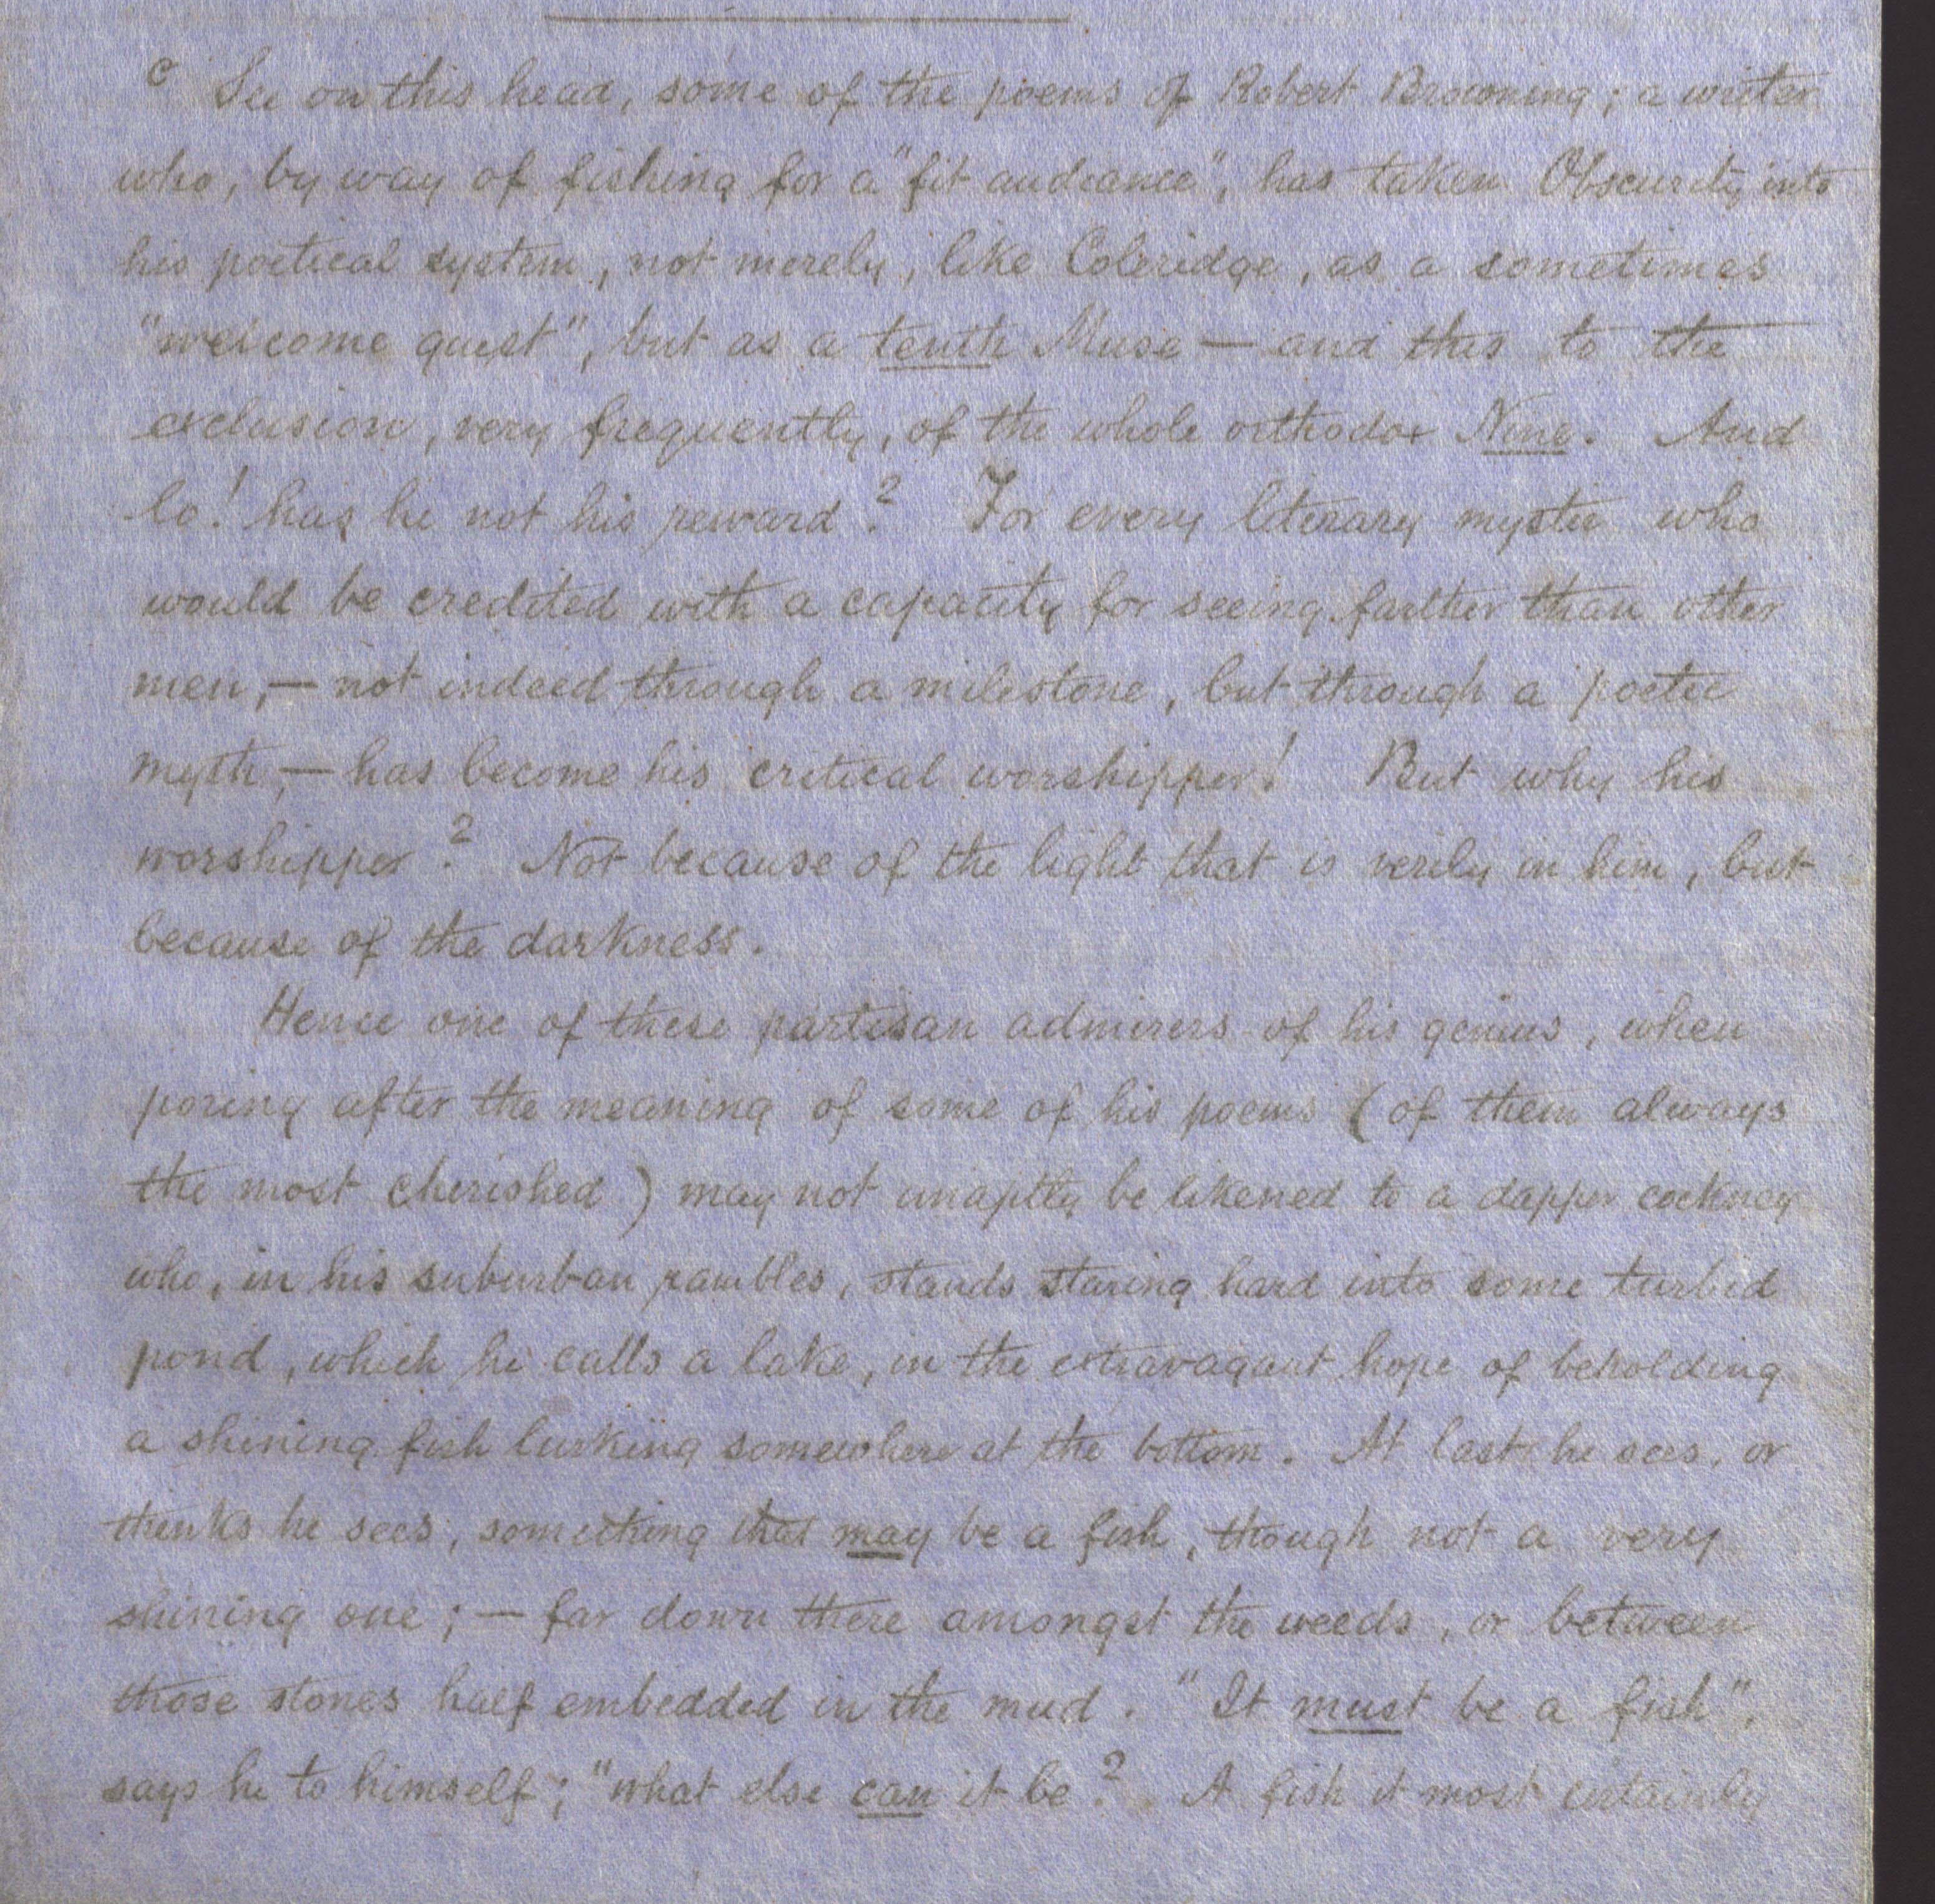 c See on this head, some of the poems of Robert Browning; a writer
who, by way of fishing for a "fit audiance", has taken Obscurity into
his poetical system, not merely, like Coleridge, as a sometimes
"welcome guest", but as a tenth Muse — and this to the
exclusion, very frequently, of the whole orthodox Nine. And
lo! has he not his reward? For every literary mystic who
would be credited with a capacity for seeing farther than other
men, — not indeed through a milestone, but through a poetic
myth, — has become his critical worshipper! But why his
worshipper? Not because of the light that is verily in him, but
because of the darkness.
Hence one of these partisan admirers of his genius, when
poring after the meaning of some of his poems (of them always
the most cherished) may not unaptly be likened to a dapper cockney
who, in his suburban rambles, stands staring hard into some turbid
pond, which he calls a lake, in the extravagant hope of beholding
a shining fish lurking somewhere at the bottom. At last he sees, or
thinks he sees, something that may be a fish, though not a very
shining one; — far down there amongst the weeds, or between
those stones half embedded in the mud. "It must be a fish",
says he to himself; "what else can it be? A fish it most certainly